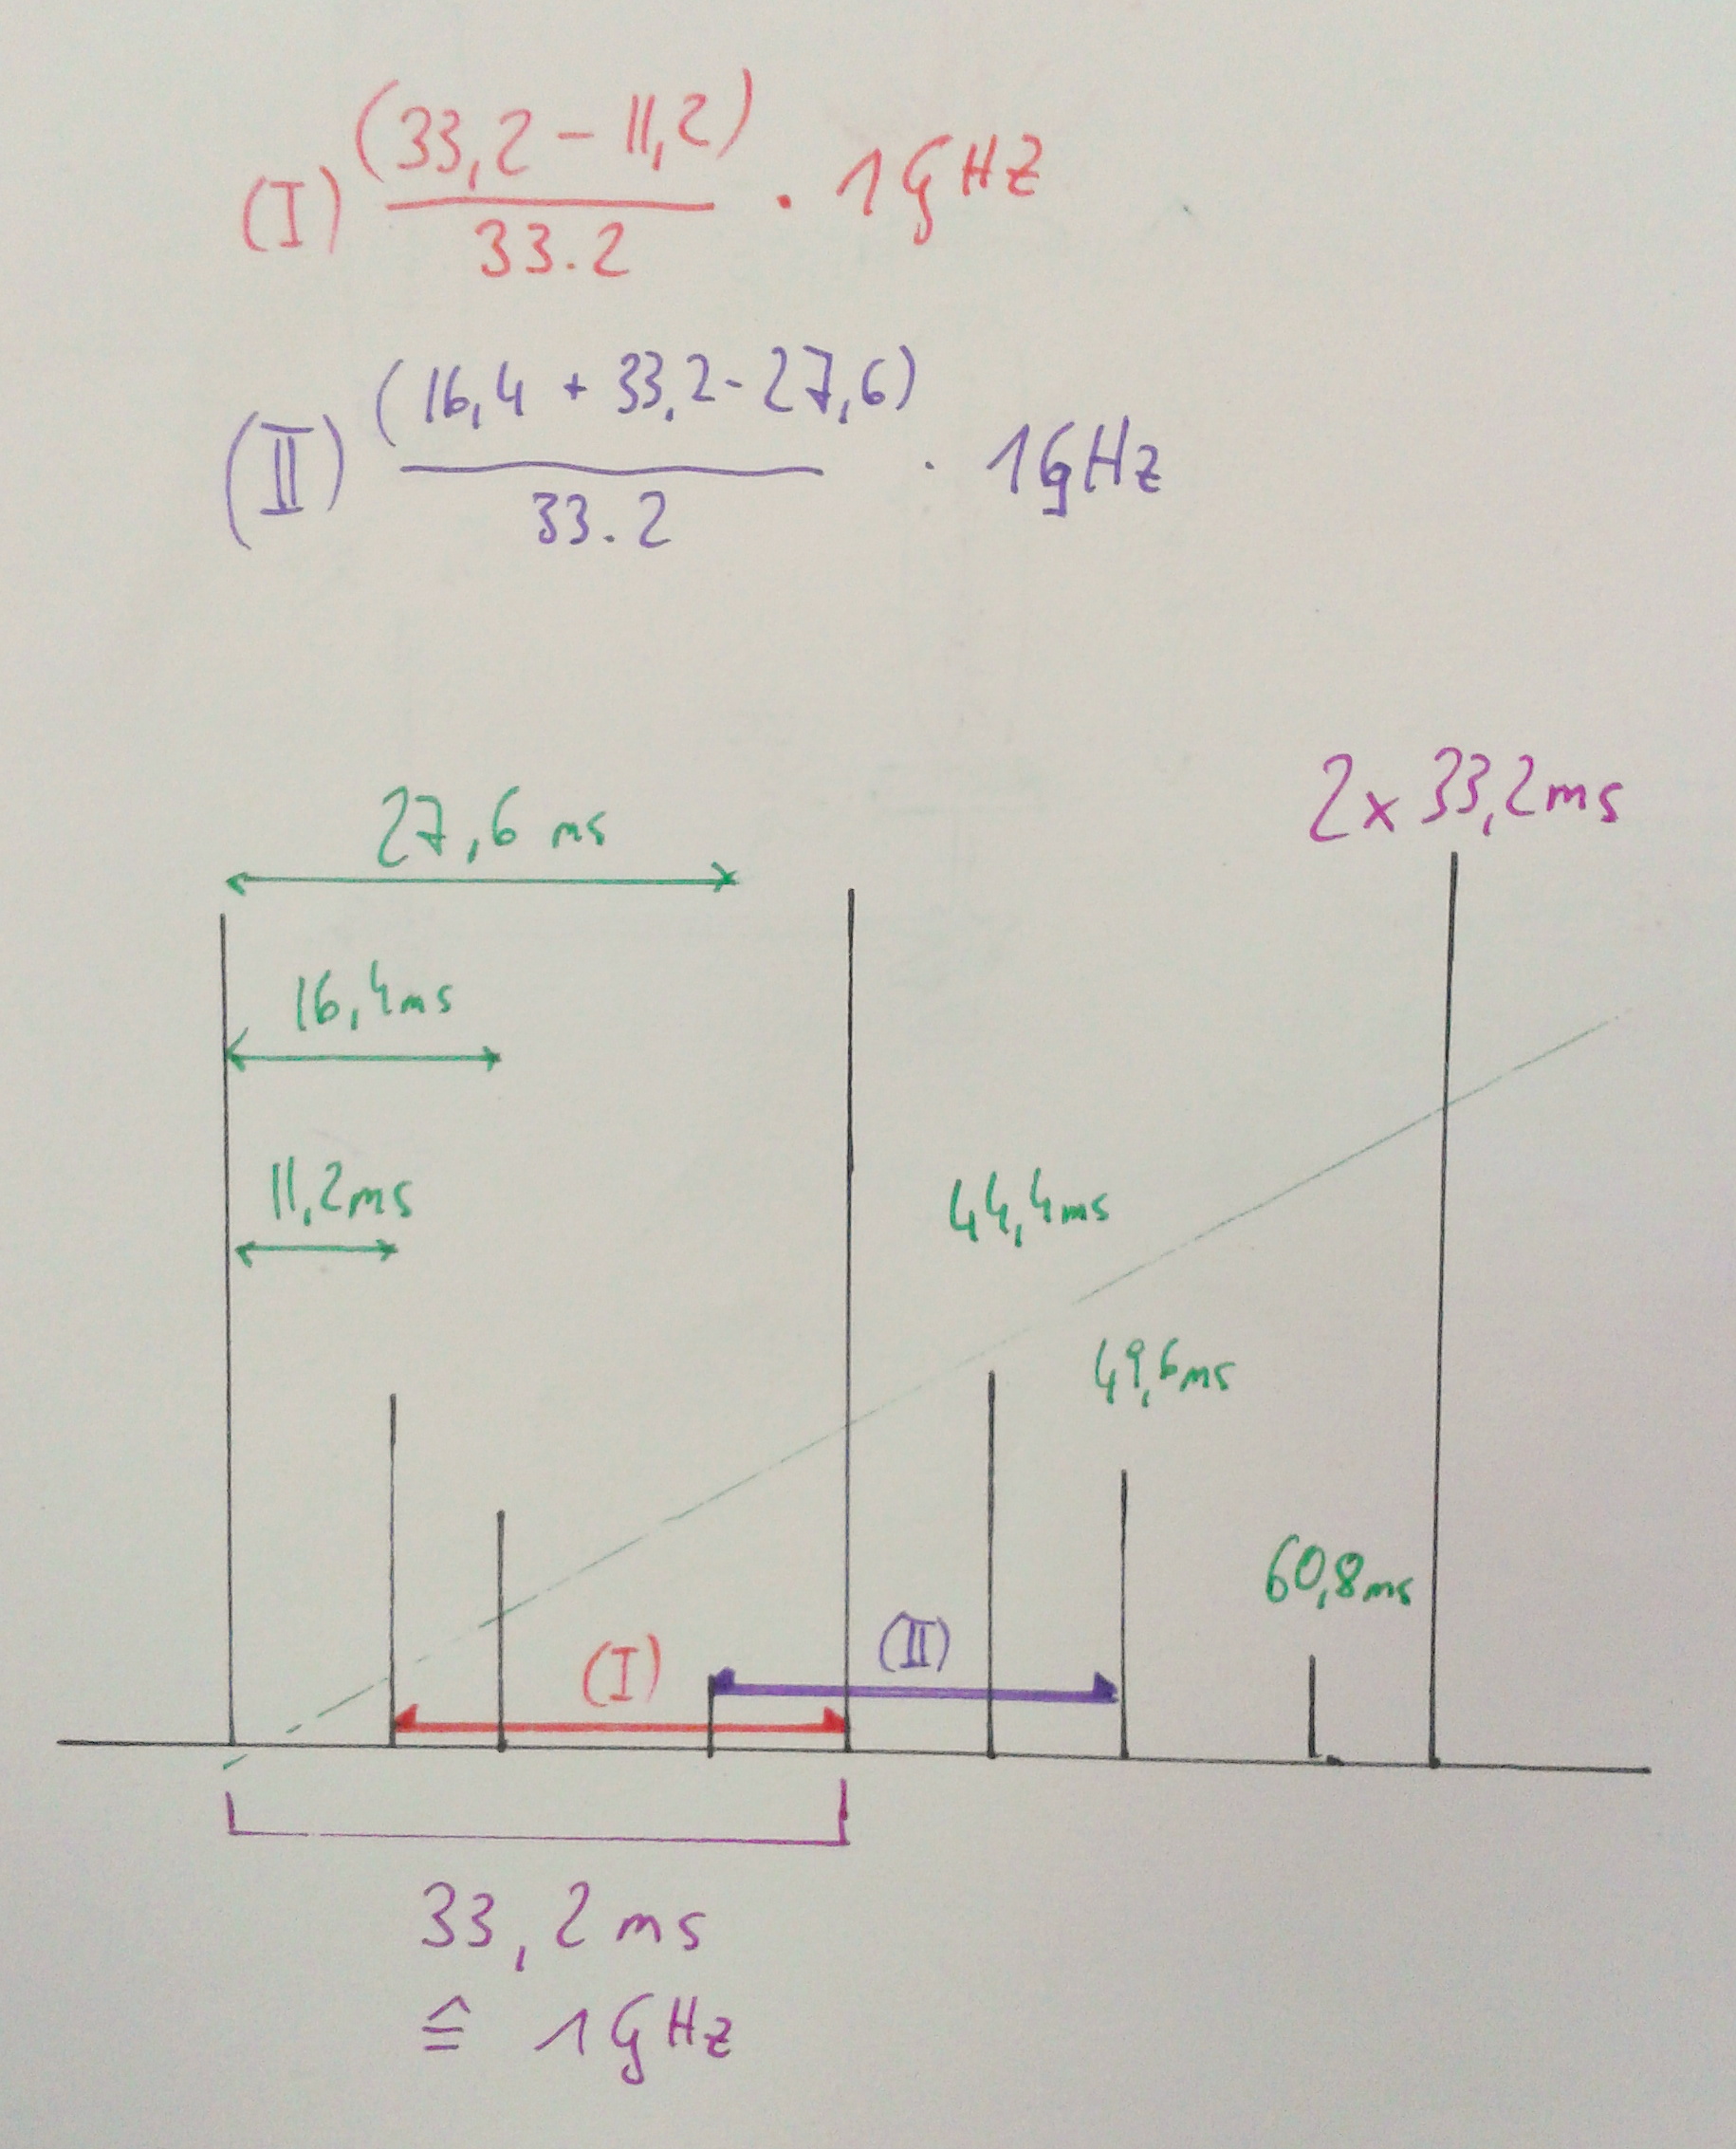 (I) (33,2 - 11,2) / 33.2 · 1GHz
(II) (16,4 + 33,2 - 27,6) / 33.2 · 1GHz
2x 33,2ms
27,6 ms
16,4ms
11,2ms
44,4ms
49,6ms
60,8ms
(I)
(II)
33,2ms
≙ 1GHz